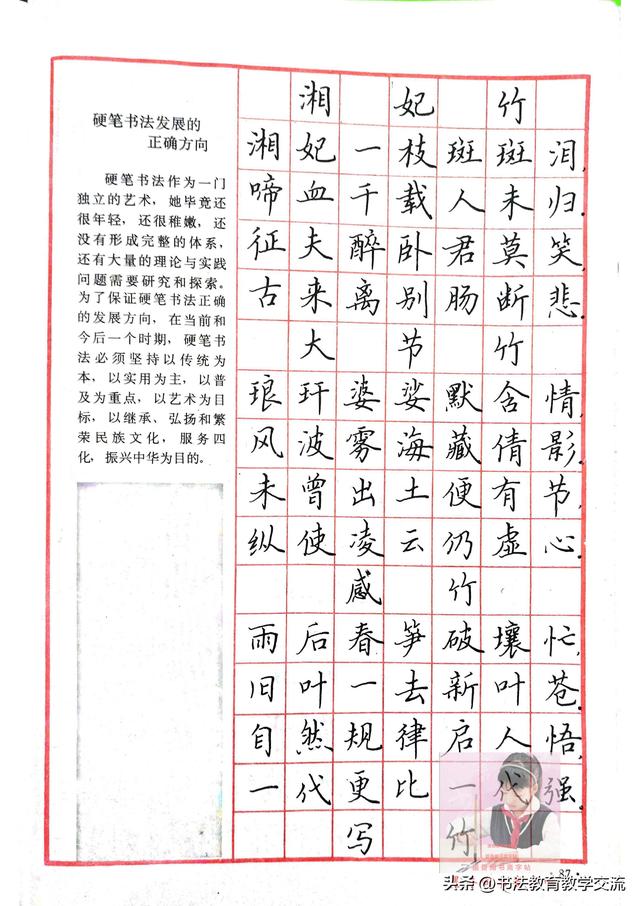 硬笔书法发展的
正确方向
硬笔书法作为一门
独立的艺术，她毕竟还
很年轻，还很稚嫩，还
没有形成完整的体系，
还有大量的理论与实践
问题需要研究和探索。
为了保证硬笔书法正确
的发展方向，在当前和
今后一个时期，硬笔书
法必须坚持以传统为
本，以实用为主，以普
及为重点，以艺术为目
标，以继承、弘扬和繁
荣民族文化，服务四
化，振兴中华为目的。
湘妃竹
湘妃一枝斑斑泪，
啼血千载人未归。
征夫醉卧君莫笑，
古来离别肠断悲。
大节竹
琅玕婆娑默含情，
风波雾海藏倩影。
未曾出土便有节，
纵使凌云仍虚心。
感竹
雨后春笋破壤忙，
旧叶一去新叶苍。
自然规律启人悟，
一代更比一代强。
写竹
·87·
头条 @书法教育教学交流